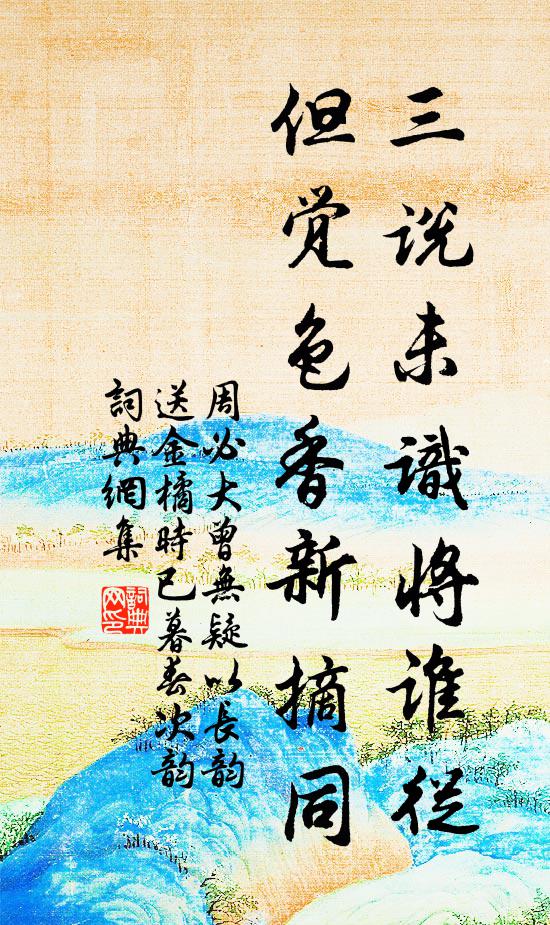 三説未識將誰從
但觉色香新摘同
周必大曾無疑以長韵
送金橘時已暮春次韵
詞典網集
詞典网印